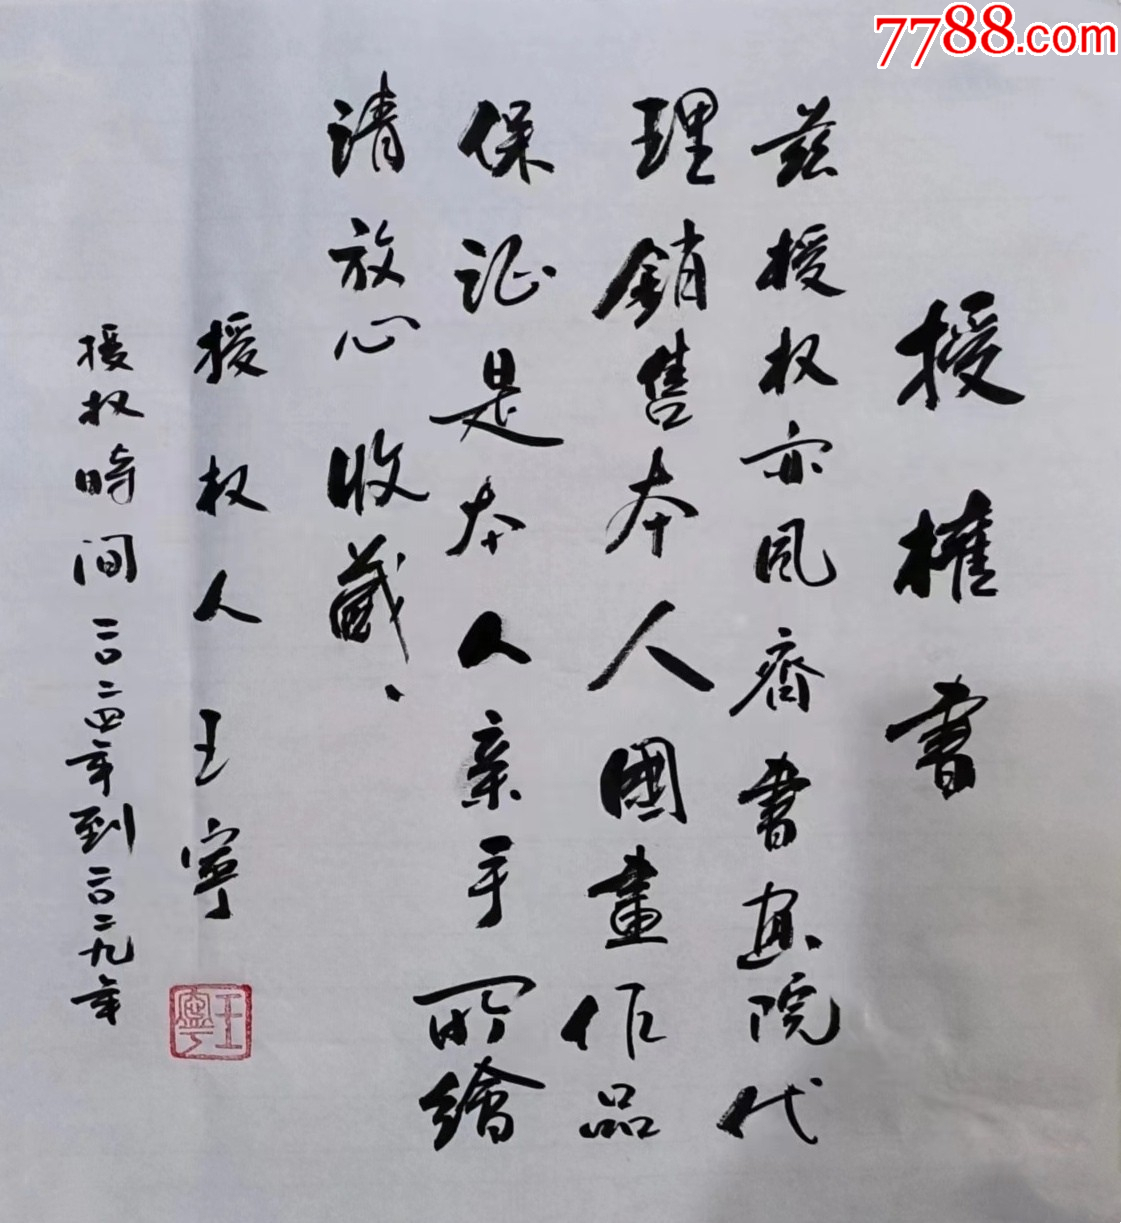 7788.com
授權書
兹授权亦风齋書画院代
理銷售本人國畫作品
保证是本人亲手所繪
请放心收藏、
授权人王寧
授权時间二〇二四年到二〇二九年
王寧